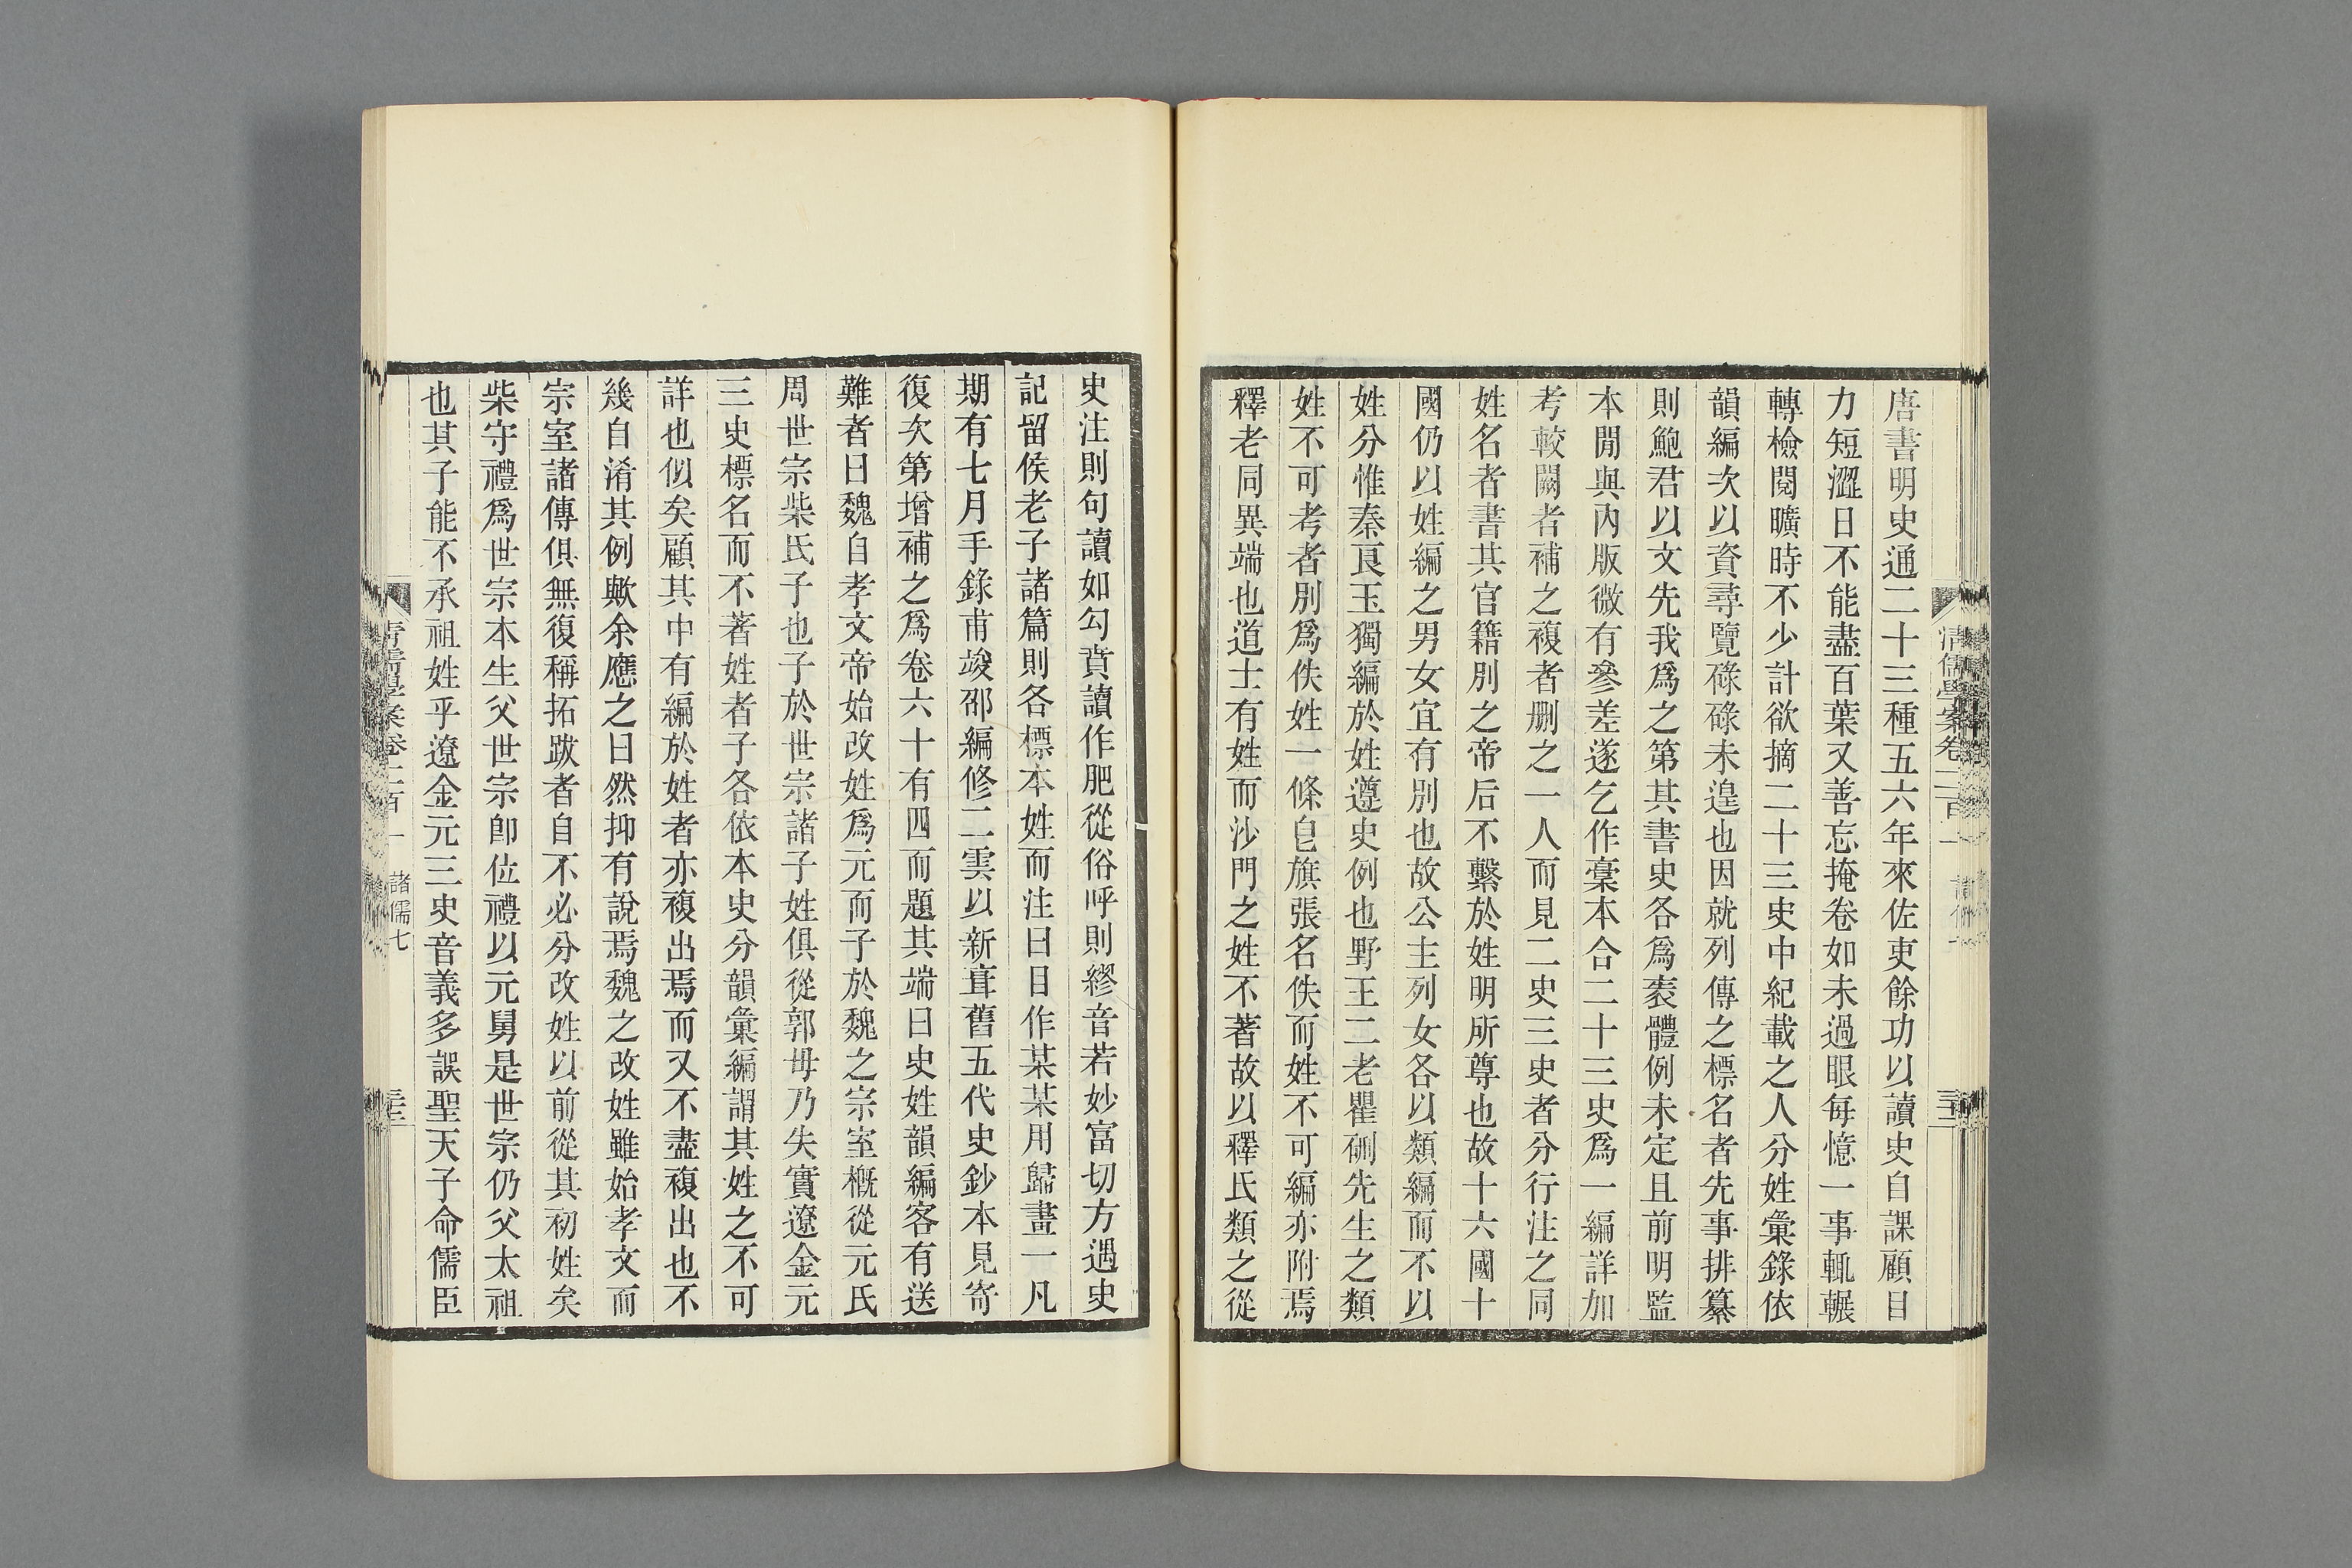 唐書明史通二十三種五六年來佐吏餘功以讀史自課顧目
力短澀日不能盡百葉又善忘掩卷如未過眼每憶一事輒輾
轉檢閱曠時不少計欲摘二十三史中紀載之人分姓彙錄依
韻編次以資尋覽碌碌未遑也因就列傳之標名者先事排纂
則鮑君以文先我爲之第其書史各爲袠體例未定且前明監
本閒與內版微有參差遂乞作稾本合二十三史爲一編詳加
考較闕者補之複者删之一人而見二史三史者分行注之同
姓名者書其官籍別之帝后不繫於姓明所尊也故十六國十
國仍以姓編之男女宜有別也故公主列女各以類編而不以
姓分惟秦良玉獨編於姓遵史例也野王二老瞿硎先生之類
姓不可考者別爲佚姓一條皀旗張名佚而姓不可編亦附焉
釋老同異端也道士有姓而沙門之姓不著故以釋氏類之從
清儒學案卷二百一
史注則句讀如勾賁讀作肥從俗呼則繆音若妙富切方遇史
記留侯老子諸篇則各標本姓而注曰目作某某用歸畫一凡
期有七月手錄甫竣邵編修二雲以新葺舊五代史鈔本見寄
復次第增補之爲卷六十有四而題其端曰史姓韻編客有送
難者曰魏自孝文帝始改姓爲元而子於魏之宗室槪從元氏
周世宗柴氏子也子於世宗諸子姓俱從郭毋乃失實遼金元
三史標名而不著姓者子各依本史分韻彙編謂其姓之不可
詳也似矣顧其中有編於姓者亦複出焉而又不盡複出也不
幾自淆其例歟余應之曰然抑有說焉魏之改姓雖始孝文而
宗室諸傳俱無復稱拓跋者自不必分改姓以前從其初姓矣
柴守禮爲世宗本生父世宗卽位禮以元舅是世宗仍父太祖
也其子能不承祖姓乎遼金元三史音義多誤聖天子命儒臣
清儒學案卷二百一 諸儒七